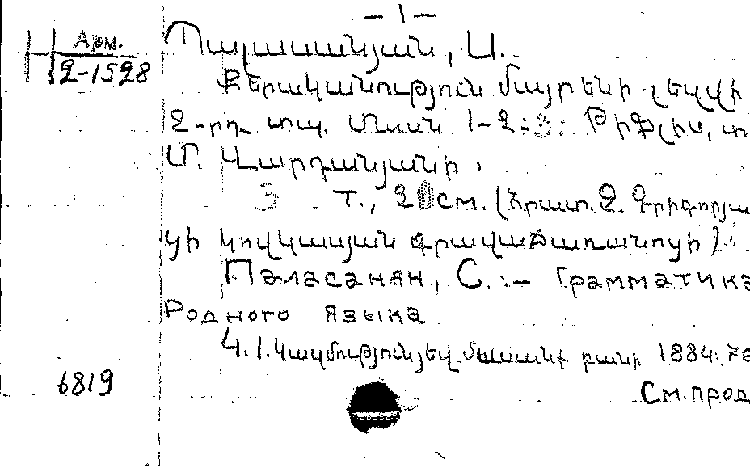 — 1 —
Арм.
2-1528
Պալասանյան, Ս.
Քերականություն մայրենի լեզվի
2-րդ տպ. Մասն 1-2; 3: Թիֆլիս, տ
Մ. Վարդանյանի,
3 т., 20 см. (Հրատ. Զ. Գրիգորյա
նի կովկասյան գրավաճառանոցի).
Паласанян, С.:— Грамматика
Родного языка
Ч. I. Կազմություն յեվ մասունք բանի 1884. 78
6819
См. прод